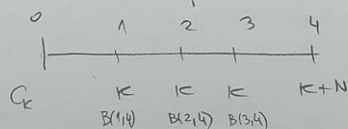 0 1 2 3 4
C_K K K K K+N
B(1,4) B(2,4) B(3,4)